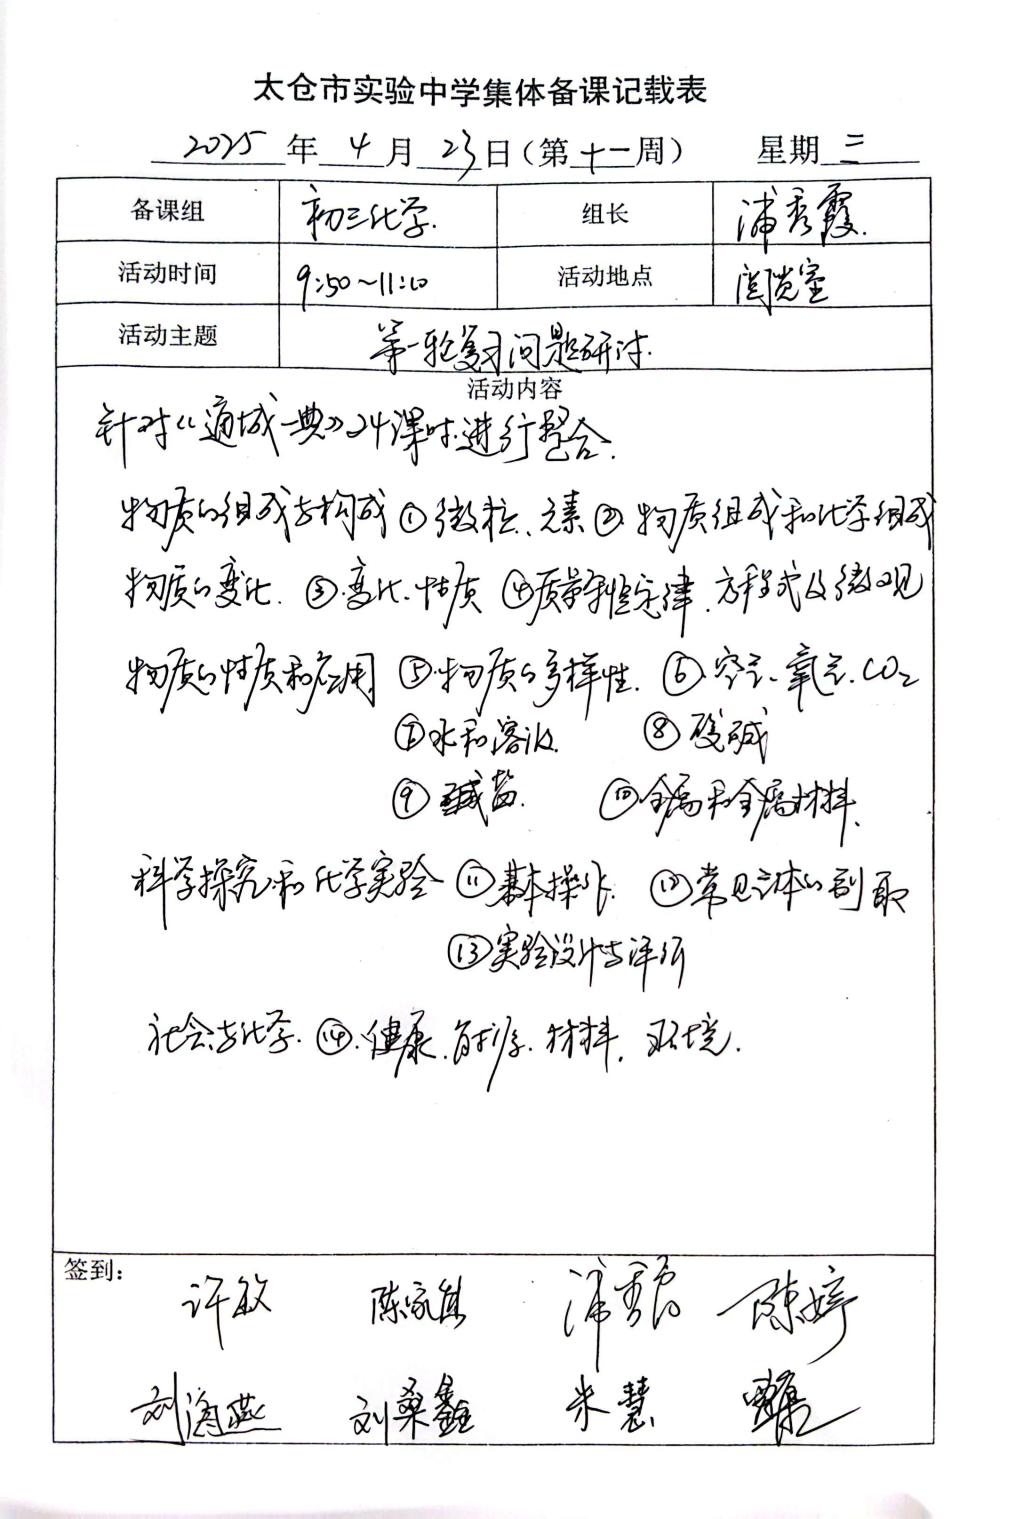 太仓市实验中学集体备课记载表
2025 年 4 月 23 日(第十一周) 星期 三
备课组 初三化学. 组长 浦秀霞.
活动时间 9:50~11:10 活动地点 阅览室
活动主题 第一轮复习问题研讨.
活动内容
针对《通城一典》24课时进行整合.
物质的组成与构成 ① 微粒、元素 ② 物质组成和化学组成
物质的变化. ③ 变化、性质 ④ 质量守恒定律、方程式及微观
物质的性质和应用 ⑤ 物质的多样性. ⑥ 空气、氧气、CO₂
⑦ 水和溶液. ⑧ 酸碱
⑨ 碱盐. ⑩ 金属和金属材料、
科学探究和化学实验 ⑪ 基本操作. ⑫ 常见气体的制取
⑬ 实验设计与评价
社会与化学. ⑭ 健康、能源、材料、环境.
签到:
许敏 陈家佳 浦秀霞 陈婷
刘海燕 刘桑鑫 朱慧